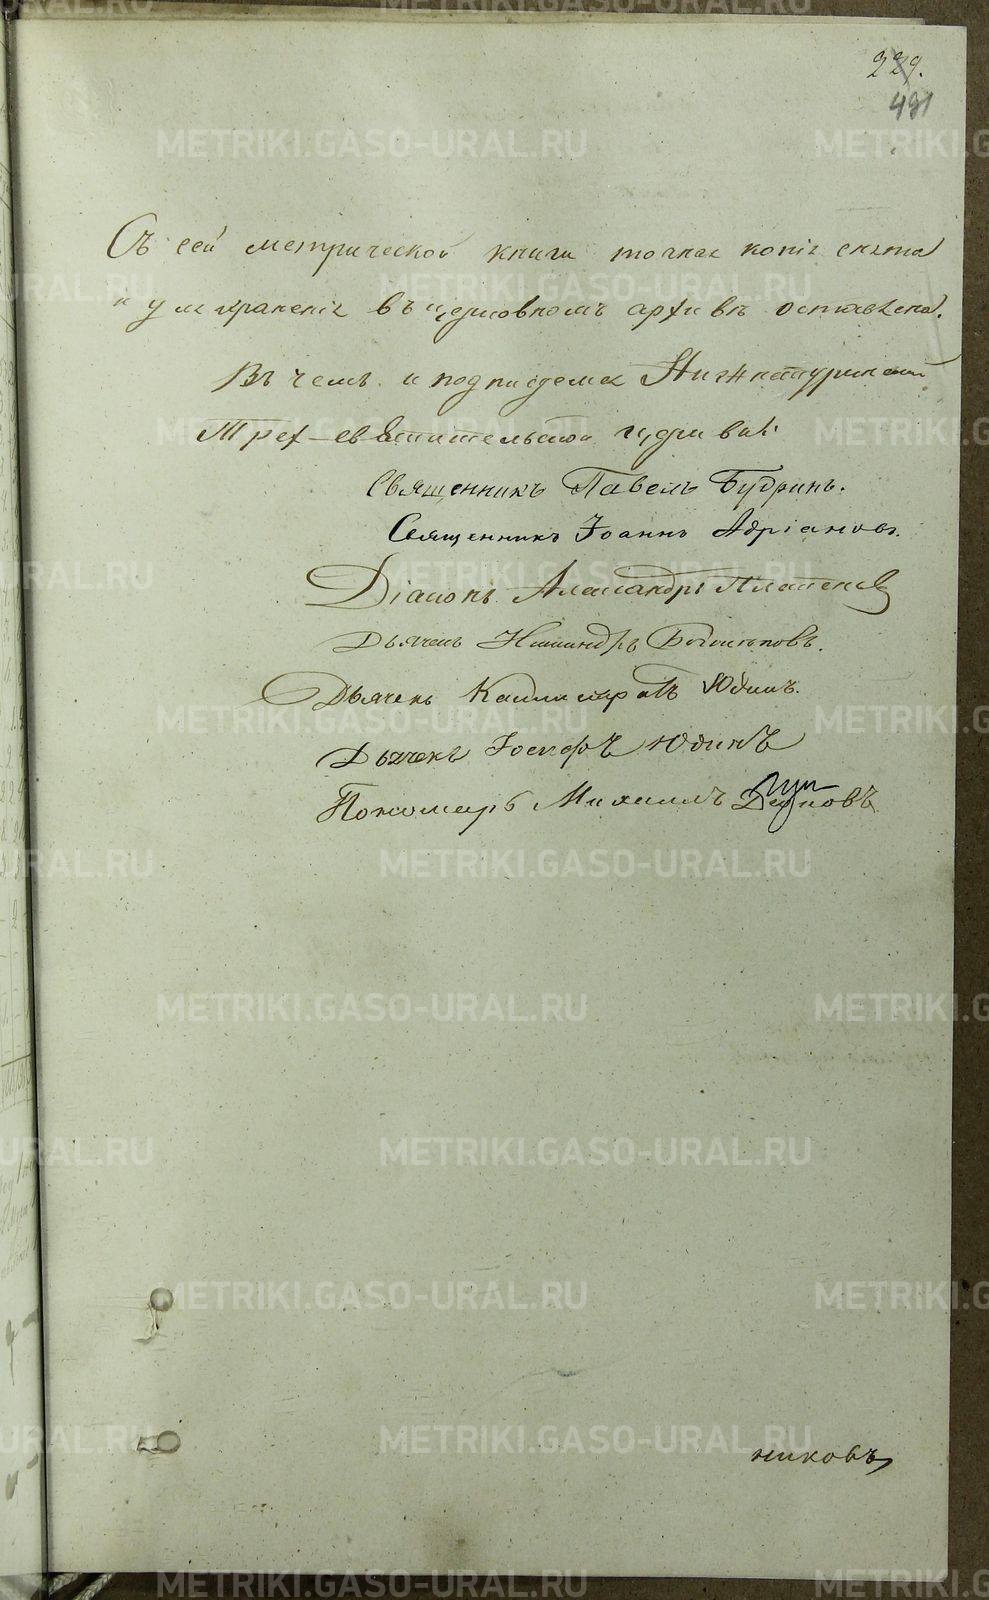 229.
481
Съ сей метрической книги точная копія снята
и для храненія въ церковномъ архивѣ оставлена.
Въ чемъ и подписуемся Нижнетуринской
Трех-святительской церкви:
Священникъ Павелъ Будринъ.
Священникъ Іоаннъ Адріановъ.
Діаконъ Александръ Платонов
Дьячекъ Никандръ
Дьячекъ Каллистратъ Юдинъ.
Дьячекъ Іосифъ Юдинъ
Пономарь Михаилъ
никовъ
METRIKI.GASO-URAL.RU